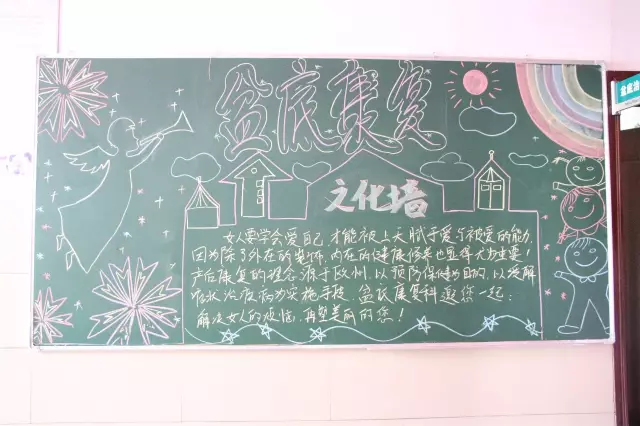 盆底康复
文化墙
女人要学会爱自己,才能被上天赋于爱与被爱的能力,
因为除了外在的装饰,内在的健康修养也显得尤为重要!
产后康复的理念源于欧州,以预防保健为目的,以缓解
临床治疗病为实施手段,盆底康复科邀您一起:
解决女人的烦恼,再塑美丽的您!
盆底治